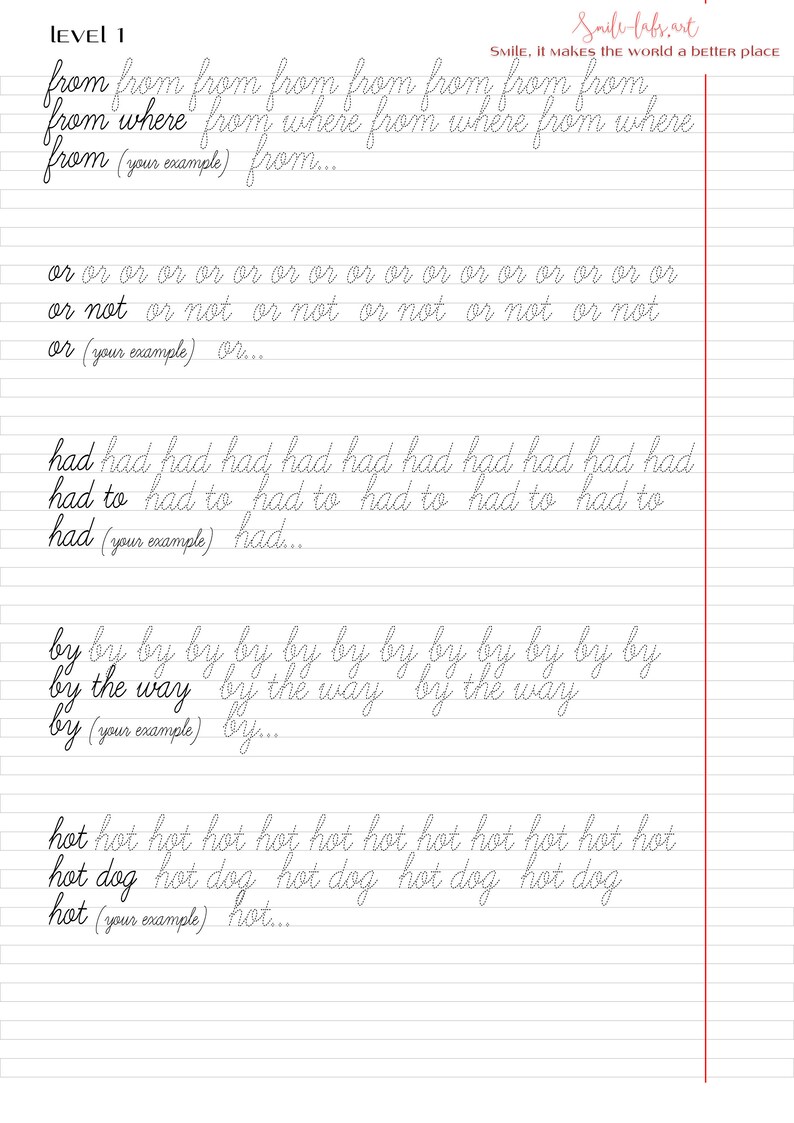 LEVEL 1
Smile-labs.art
SMILE, IT MAKES THE WORLD A BETTER PLACE
from from from from from from from from
from where from where from where from where
from (your example) from...
or or or or or or or or or or or or or or or or or
or not or not or not or not or not or not
or (your example) or...
had had had had had had had had had had had
had to had to had to had to had to had to
had (your example) had...
by by by by by by by by by by by by by
by the way by the way by the way
by (your example) by...
hot hot hot hot hot hot hot hot hot hot hot hot
hot dog hot dog hot dog hot dog hot dog
hot (your example) hot...